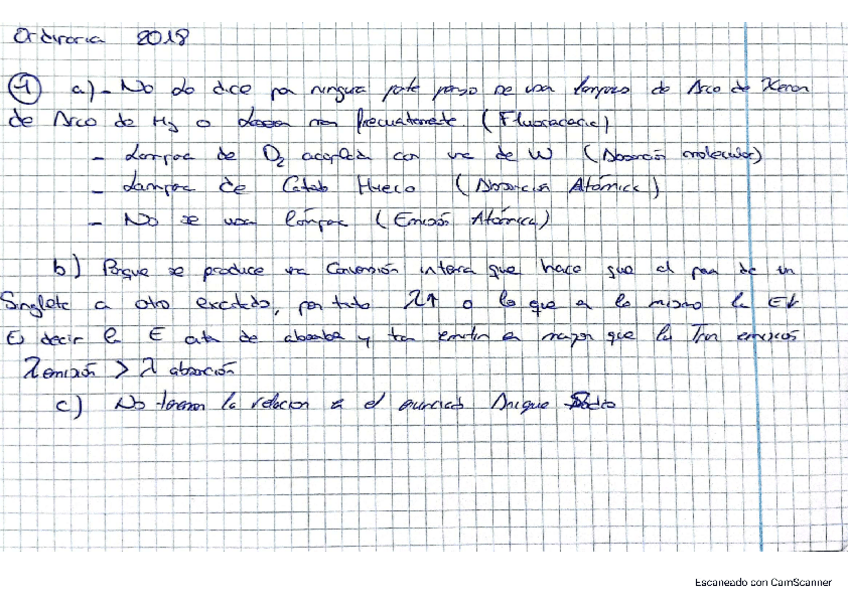 Ordinaria 2018
1 a) - No lo dice por ningua parte pero se usa lampara de Arco de Xenon
de Arco de Hg o laser mas frecuentemente. (Fluorescencia)
- Lampara de D2 acoplada con una de W (Absorción molecular)
- Lampara de Catodo Hueco (Absorción Atómica)
- No se usa lámpara (Emisión Atómica)
b) Porque se produce una Conversión interna que hace que el de un
Singlete a otro excitado, por tanto λ↑ o lo que es lo mismo la E↓
Es decir la E de absorber y emitir es mayor que la
λ emisión > λ absorción
c) No tenemos la relacion en el enunciado
Escaneado con CamScanner